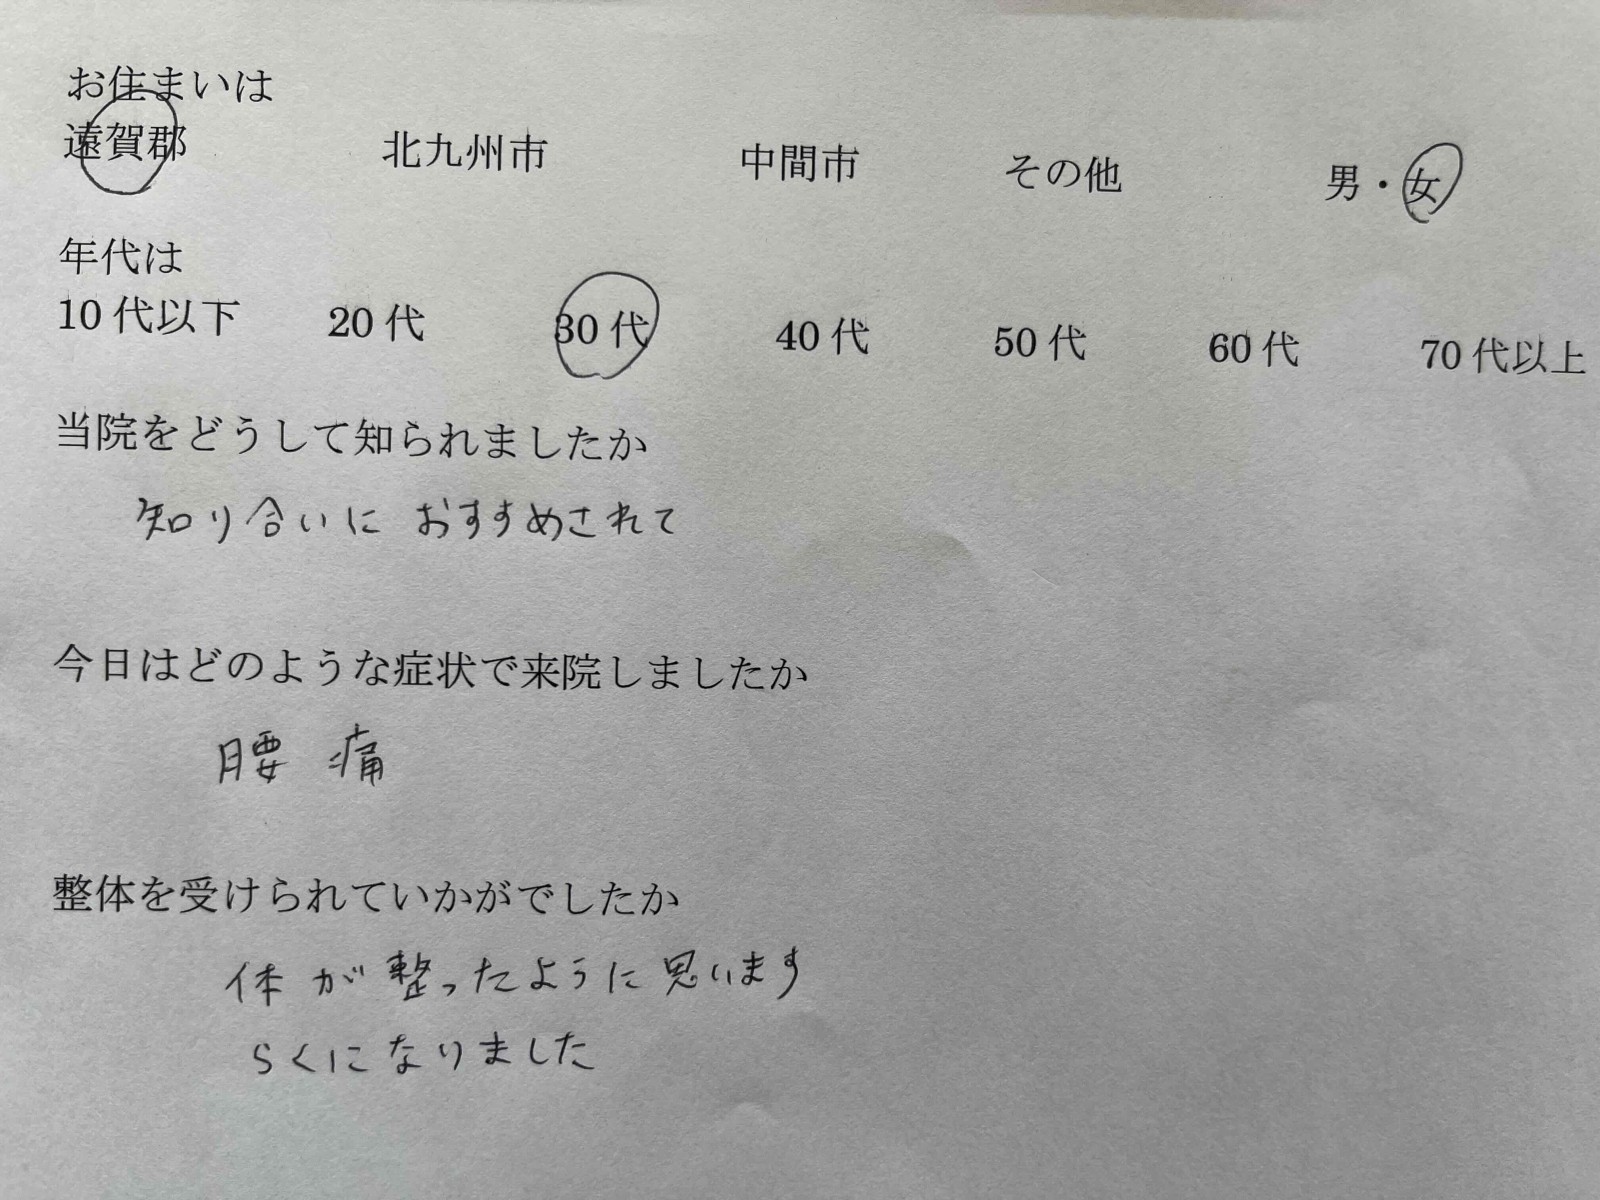 お住まいは
遠賀郡 北九州市 中間市 その他 男・女
年代は
10代以下 20代 30代 40代 50代 60代 70代以上
当院をどうして知られましたか
知り合いに おすすめされて
今日はどのような症状で来院しましたか
腰痛
整体を受けられていかがでしたか
体が整ったように思います
らくになりました